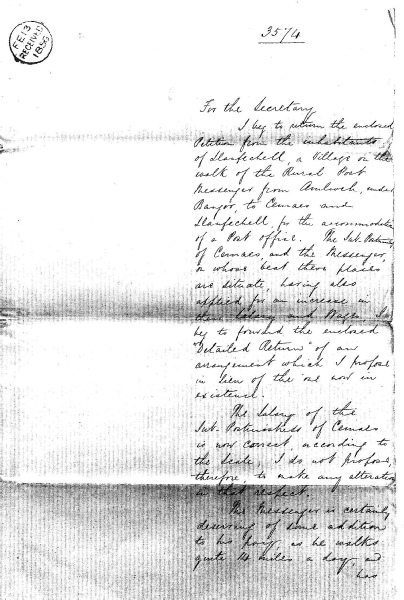 FE 13
RECEIVED
1856
35/4
For the Secretary
I beg to return the enclosed
Petition from the inhabitants
of Llanfechell, a Village on the
walk of the Rural Post
Messenger from Amlwch, under
Bangor, to Cemaes and
Llanfechell, for the accommodation
of a Post Office. The Sub-Postmistress
of Cemaes, and the Messenger,
on whose beat these places
are situate, having also
applied for an increase in
their Salary and Wages I
beg to forward the enclosed
"Detailed Return" of an
arrangement which I propose
in lieu of the one now in
existence.
The Salary of the
Sub-Postmistress of Cemaes
is now correct according to
the Scale. I do not propose,
therefore, to make any alteration
in that respect.
The Messenger is certainly
deserving of some addition
to his pay, as he walks
quite 14 miles a day, and
has